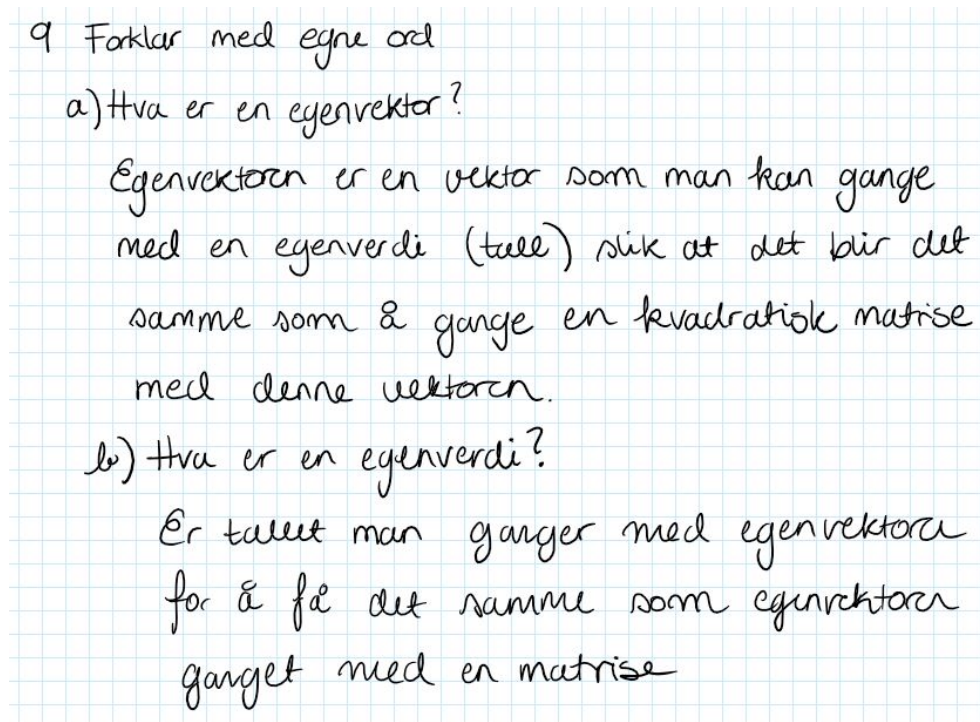 9 Forklar med egne ord
a) Hva er en egenvektor?
Egenvektoren er en vektor som man kan gange
med en egenverdi (tall) slik at det blir det
samme som å gange en kvadratisk matrise
med denne vektoren.
b) Hva er en egenverdi?
Er tallet man ganger med egenvektoren
for å få det samme som egenvektoren
ganget med en matrise